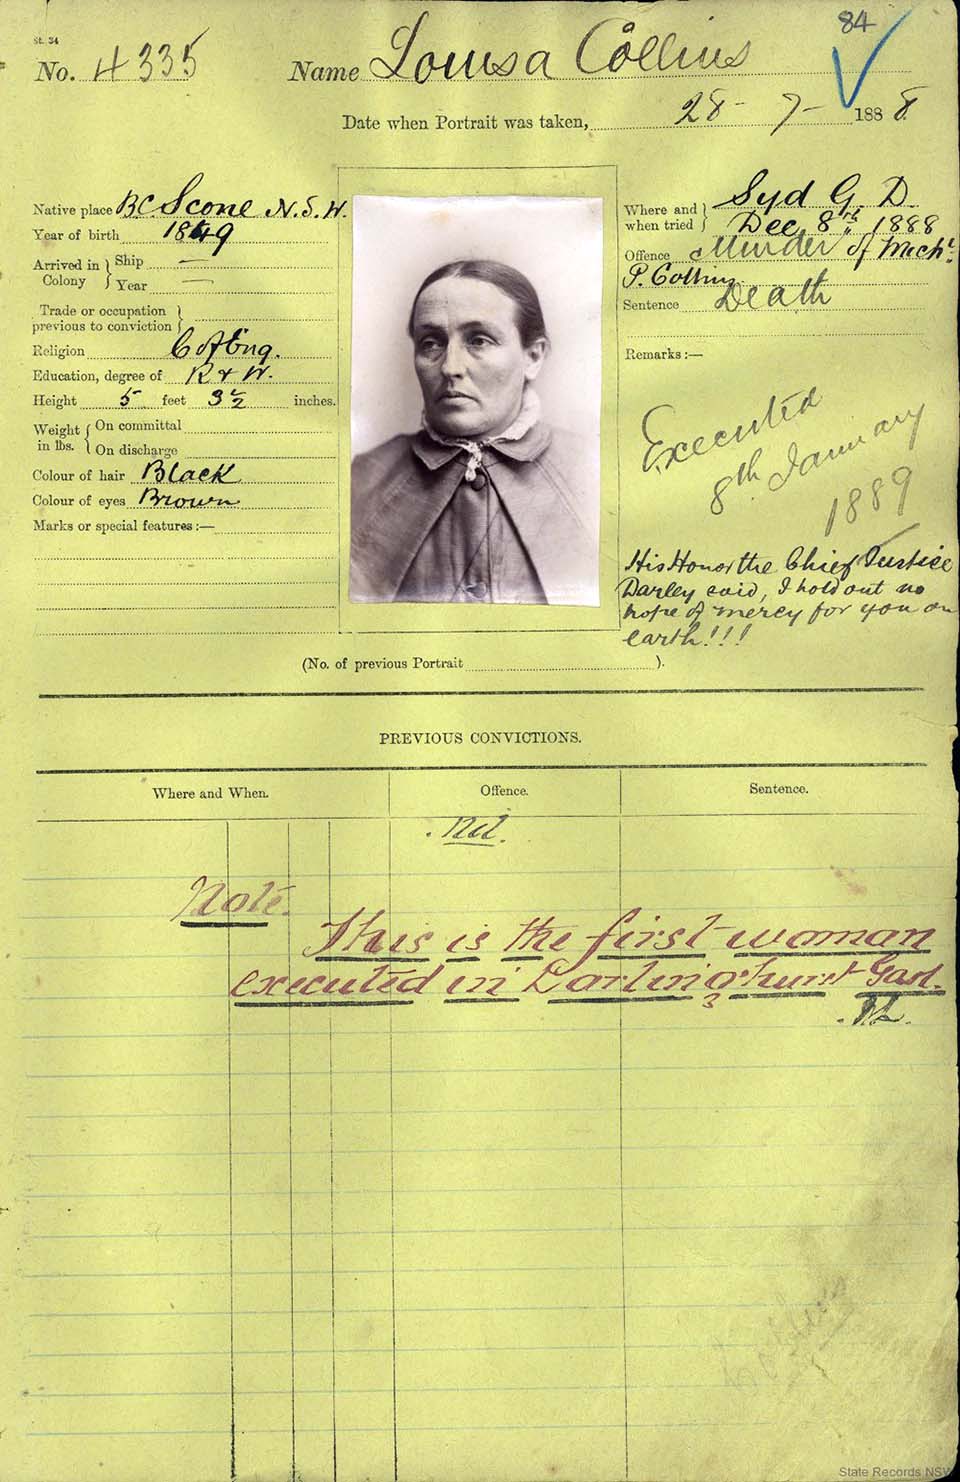 84
St. 34
No. 4335 Name Louisa Collins
Date when Portrait was taken, 28-7-1888
Native place BC Scone N.S.W.
Year of birth 1849
Arrived in Colony } Ship —
Year —
Trade or occupation previous to conviction }
Religion C of Eng.
Education, degree of R & W.
Height 5 feet 3½ inches.
Weight in lbs. { On committal
On discharge
Colour of hair Black
Colour of eyes Brown
Marks or special features:—
Where and when tried } Syd G. D.
Dec. 8th 1888
Offence Murder of Mich^l.
P. Collins
Sentence Death
Remarks:—
Executed
8th January
1889
His Honor the Chief Justice
Darley said, I hold out no
hope of mercy for you on
earth!!!
(No. of previous Portrait ).
PREVIOUS CONVICTIONS.
Where and When. Offence. Sentence.
Nil.
Note.
This is the first woman
executed in Darlinghurst Gaol.
State Records NSW